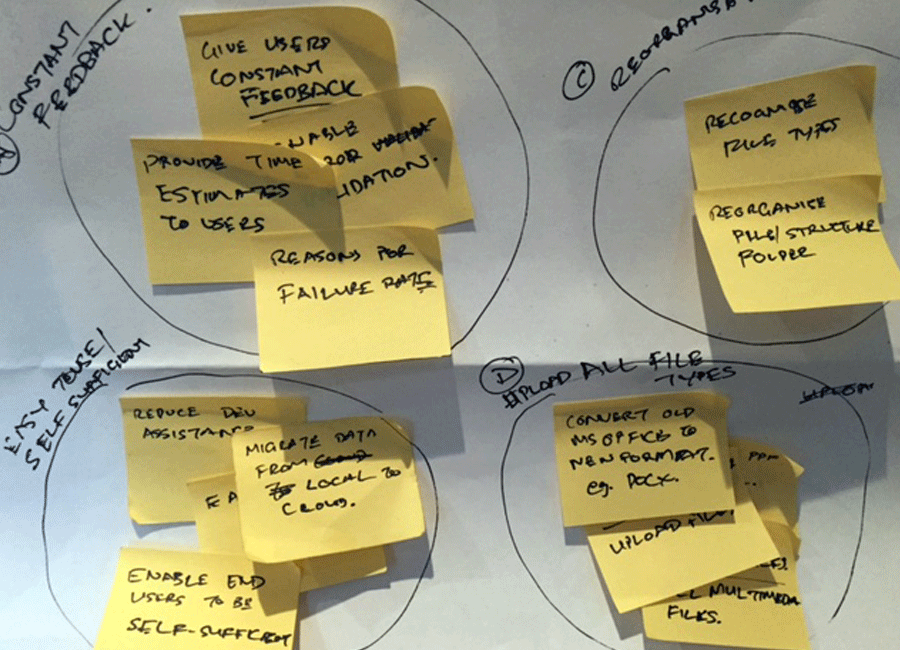 A CONSTANT
FEEDBACK.
GIVE USERS
CONSTANT
FEEDBACK
ENABLE
PROVIDE TIME
ESTIMATES
TO USERS
IDATION.
REASONS FOR
FAILURE RATE
C
RECOGNISE
FILE TYPES
REORGANISE
FILE/STRUCTURE
FOLDER
EASY TO USE/
SELF SUFFICIENT
REDUCE DEV
ASSISTANCE
MIGRATE DATA
FROM CLOUD
TO LOCAL TO
CLOUD.
ENABLE END
USERS TO BE
SELF-SUFFICIENT
D UPLOAD ALL FILE
TYPES
UPLOAD
CONVERT OLD
MS OFFICE TO
NEW FORMAT.
eg. DOCX.
UPLOAD
MULTIMEDIA
FILES.